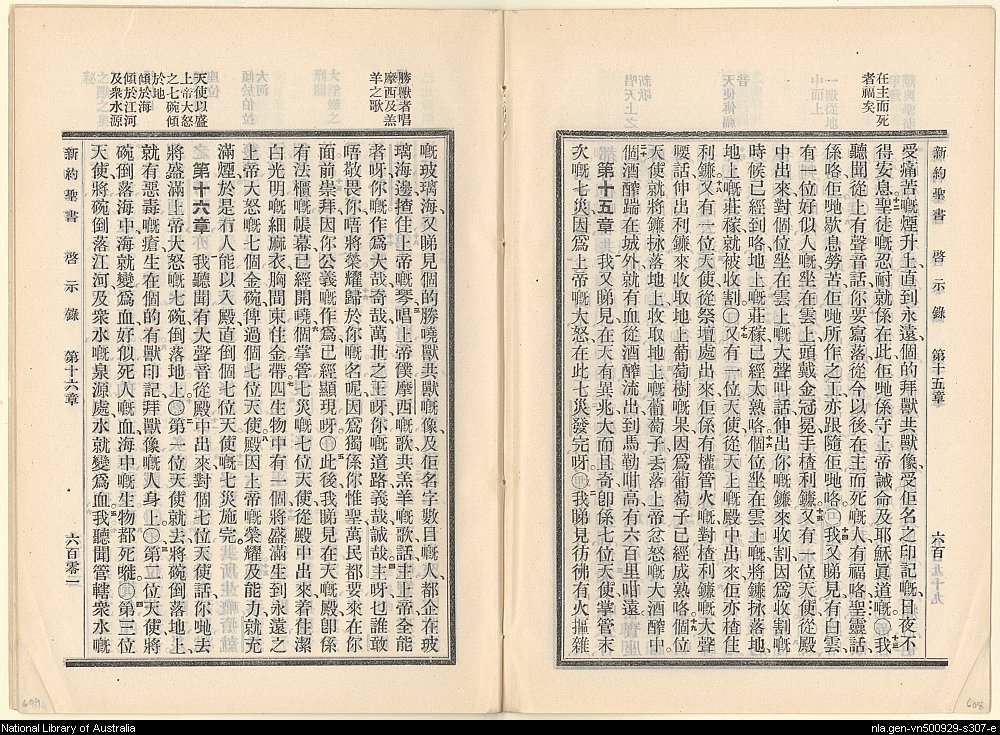 在主而死
者福矣
新約聖書 啓示錄 第十五章 六百五十九
受痛苦嘅煙升上直到永遠個的拜獸共獸像受佢名之印記嘅日夜不
得安息聖徒嘅忍耐就係在此佢哋係守上帝誡命及耶穌眞道嘅我
聽聞從上有聲音話你要寫落從今以後在主而死嘅人有福咯聖靈話
係咯佢哋歇息勞苦佢哋所作之工亦跟隨佢哋咯我又睇見有白雲
有一位好似人子嘅坐在雲上頭戴金冠冕手揸利鐮又有一位天使從殿
中出來對個位坐在雲上嘅大聲叫話伸出你嘅鐮來收割因爲收割嘅
時候已經到咯地上嘅莊稼已經太熟咯個位坐在雲上嘅將鐮捈落地
地上嘅莊稼就被收割又有一位天使從天上嘅殿中出來佢亦揸住
利鐮又有一位天使從祭壇處出來佢係有權管火嘅對揸利鐮嘅大聲
話伸出利鐮來收取地上葡萄樹嘅果因爲葡萄子已經成熟咯個位
天使就將鐮捈落地上收取地上嘅葡萄子丢落上帝忿怒嘅大酒醡中
個酒醡踹在城外就有血從酒醡流出到馬勒咁高有六百里咁遠
第十五章 我又睇見在天有異兆大而且奇卽係七位天使掌管末
次嘅七災因爲上帝嘅大怒在此七災發完呀我睇見彷彿有火攙雜
勝獸者唱
摩西及羔
羊之歌
天使以盛
上帝大怒
之七碗傾
於地
傾於海
傾於江河
及衆水源
嘅玻璃海又睇見個的勝嘵獸共獸嘅像及佢名字數目嘅人都企在玻
璃海邊揸住上帝嘅琴唱上帝僕摩西嘅歌共羔羊嘅歌話主上帝全能
者呀你嘅作爲大哉奇哉萬世之王呀你嘅道路義哉誠哉主呀也誰敢
唔敬畏你唔將榮耀歸於你嘅名呢因爲獨係你惟聖萬民都要來在你
面前崇拜因你公義嘅作爲已經顯現呀此後我睇見在天嘅殿卽係
有法櫃嘅帳幕已經開嘵個掌管七災嘅七位天使從殿中出來着住潔
白光明嘅細麻衣胸間束住金帶四生物中有一個將盛滿生到永遠之
上帝大怒嘅七個金碗俾過個七位天使殿因上帝嘅榮耀及能力就充
滿煙於是冇人能以入殿直倒個七位天使嘅七災施完
第十六章 我聽聞有大聲音從殿中出來對個七位天使話你哋去
將盛滿上帝大怒嘅七碗倒落地上第一位天使就去將碗倒落地上
就有惡毒嘅瘡生在個的有獸印記拜獸像嘅人身上第二位天使將
碗倒落海中海就變爲血好似死人嘅血海中嘅生物都死嘥第三位
天使將碗倒落江河及衆水嘅泉源處水就變爲血我聽聞管轄衆水嘅
新約聖書 啓示錄 第十六章 六百零一
National Library of Australia
nla.gen-vn500929-s307-e